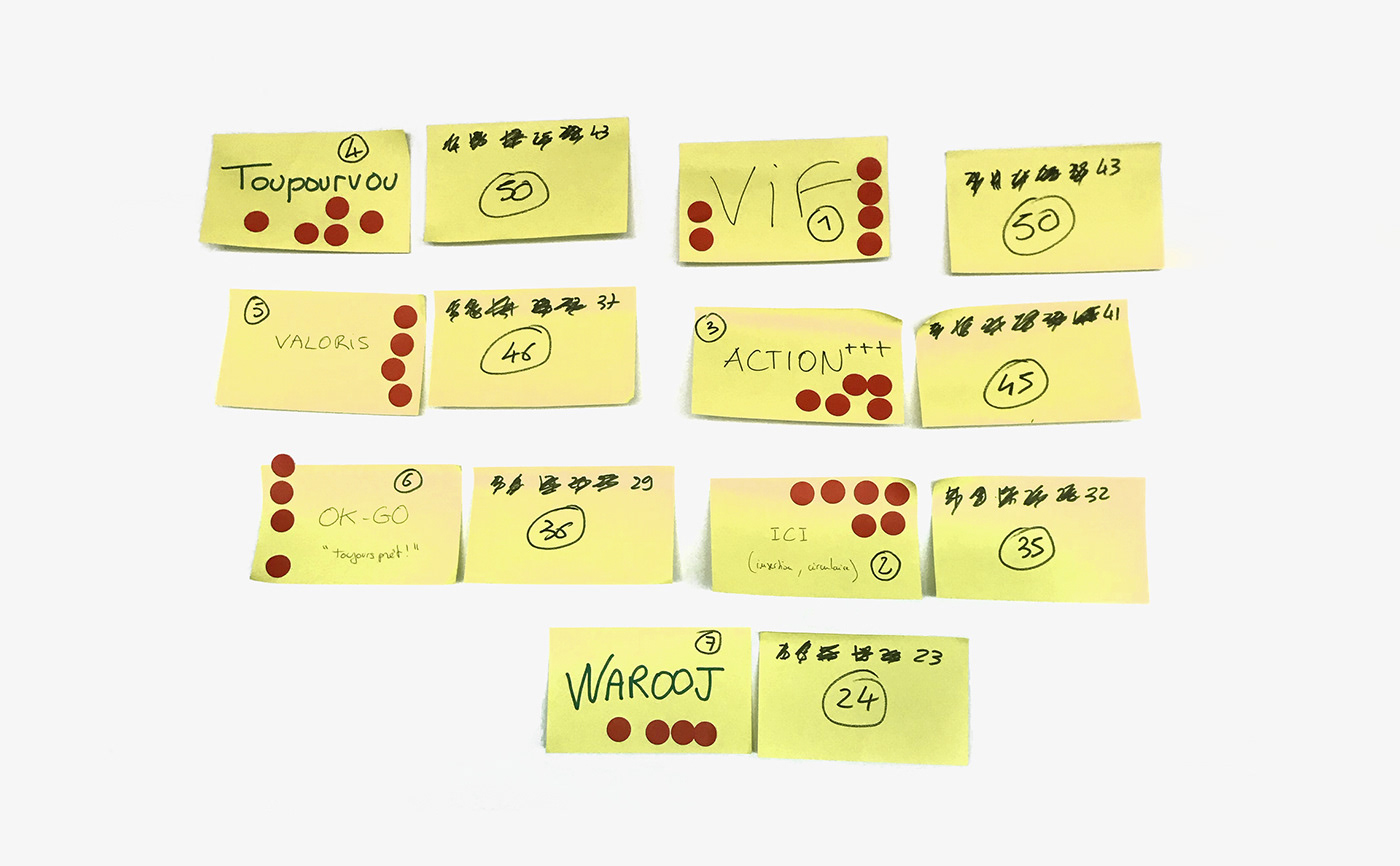 4
Toupourvou
43
50
ViF
1
43
50
5
VALORIS
37
46
3
ACTION+++
41
45
6
OK-GO
"toujours prêt!"
29
36
ICI
(insertion, circulaire)
2
32
35
7
WAROOJ
23
24